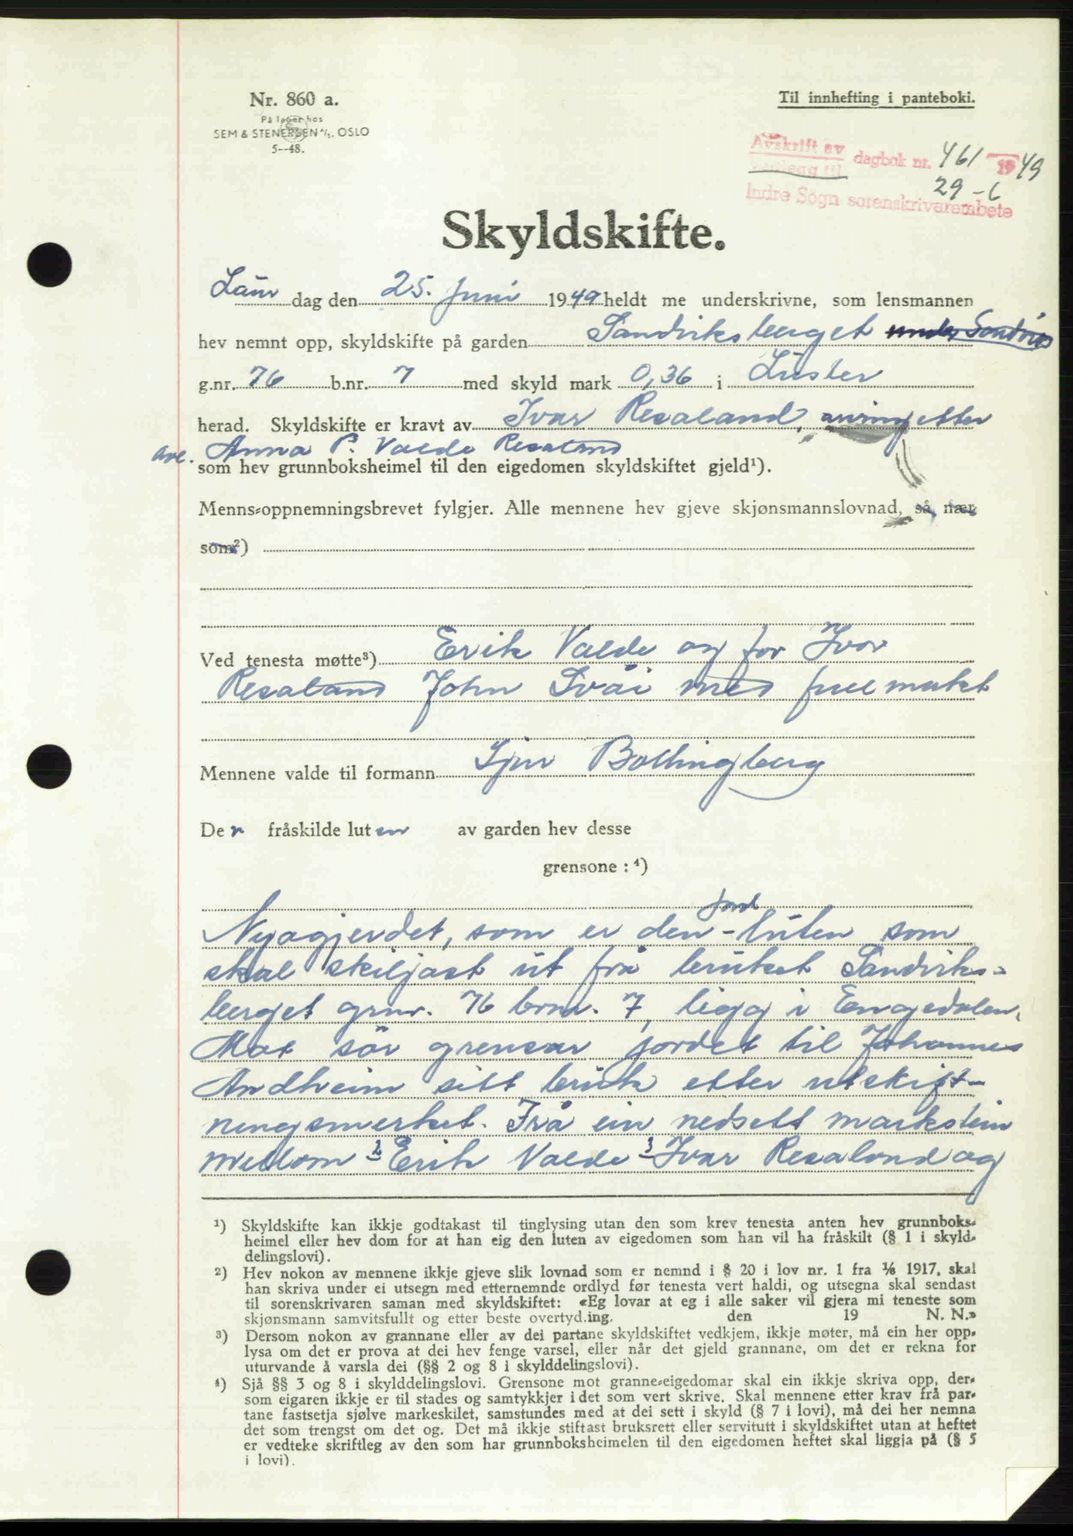 Nr. 860 a.
På lager hos
SEM & STENERSEN A/S. OSLO
5--48.
Til innhefting i panteboki.
Avskrift av
dagbok nr. 461 1949
29 - 6
Indre Sogn sorenskrivarembete
Skyldskifte.
Laur dag den 25. Juni 1949 heldt me underskrivne, som lensmannen
hev nemnt opp, skyldskifte på garden Sandviksberget under Sandvik
g.nr. 76 b.nr. 7 med skyld mark 0,36 i Luster
herad. Skyldskifte er kravt av Ivar Resaland, arving etter
Anna P. Valde Resaland
som hev grunnboksheimel til den eigedomen skyldskiftet gjeld¹).
Menns-oppnemningsbrevet fylgjer. Alle mennene hev gjeve skjønsmannslovnad, så nær
som²)
Ved tenesta møtte³) Erik Valde og for Ivar
Resaland John Svåi med fullmakt
Mennene valde til formann Sjur Bollingberg
Der fråskilde luten av garden hev desse
grensone : ⁴)
jord
Nyagjerdet, som er den - luten som
skal skiljast ut frå bruket Sandviks-
berget grnr. 76 brnr. 7, ligg i Engedalen.
Mot sör grensar jordet til Johannes
Andheim sitt bruk etter utskift-
ningsmerket. Frå ein nedsett markstein
mellom Erik Valde Ivar Resaland og
¹) Skyldskifte kan ikkje godtakast til tinglysing utan den som krev tenesta anten hev grunnboks-
heimel eller hev dom for at han eig den luten av eigedomen som han vil ha fråskilt (§ 1 i skyld-
delingslovi).
²) Hev nokon av mennene ikkje gjeve slik lovnad som er nemnd i § 20 i lov nr. 1 fra 1/6 1917, skal
han skriva under ei utsegn med etternemnde ordlyd før tenesta vert haldi, og utsegna skal sendast
til sorenskrivaren saman med skyldskiftet: «Eg lovar at eg i alle saker vil gjera mi teneste som
skjønsmann samvitsfullt og etter beste overtyd.ing. den 19 N. N.»
³) Dersom nokon av grannane eller av dei partane skyldskiftet vedkjem, ikkje møter, må ein her opp-
lysa om det er prova at dei hev fenge varsel, eller når det gjeld grannane, om det er rekna for
uturvande å varsla dei (§§ 2 og 8 i skylddelingslovi).
⁴) Sjå §§ 3 og 8 i skylddelingslovi. Grensone mot granne-eigedomar skal ein ikkje skriva opp, der-
som eigaren ikkje er til stades og samtykkjer i det som vert skrive. Skal mennene etter krav frå par-
tane fastsetja sjølve markeskilet, samstundes med at dei sett i skyld (§ 7 i lovi), må dei her nemna
det som trengst om det og. Det må ikkje stiftast bruksrett eller servitutt i skyldskiftet utan at heftet
er vedteke skriftleg av den som har grunnboksheimelen til den eigedomen heftet skal liggja på (§ 5
i lovi).